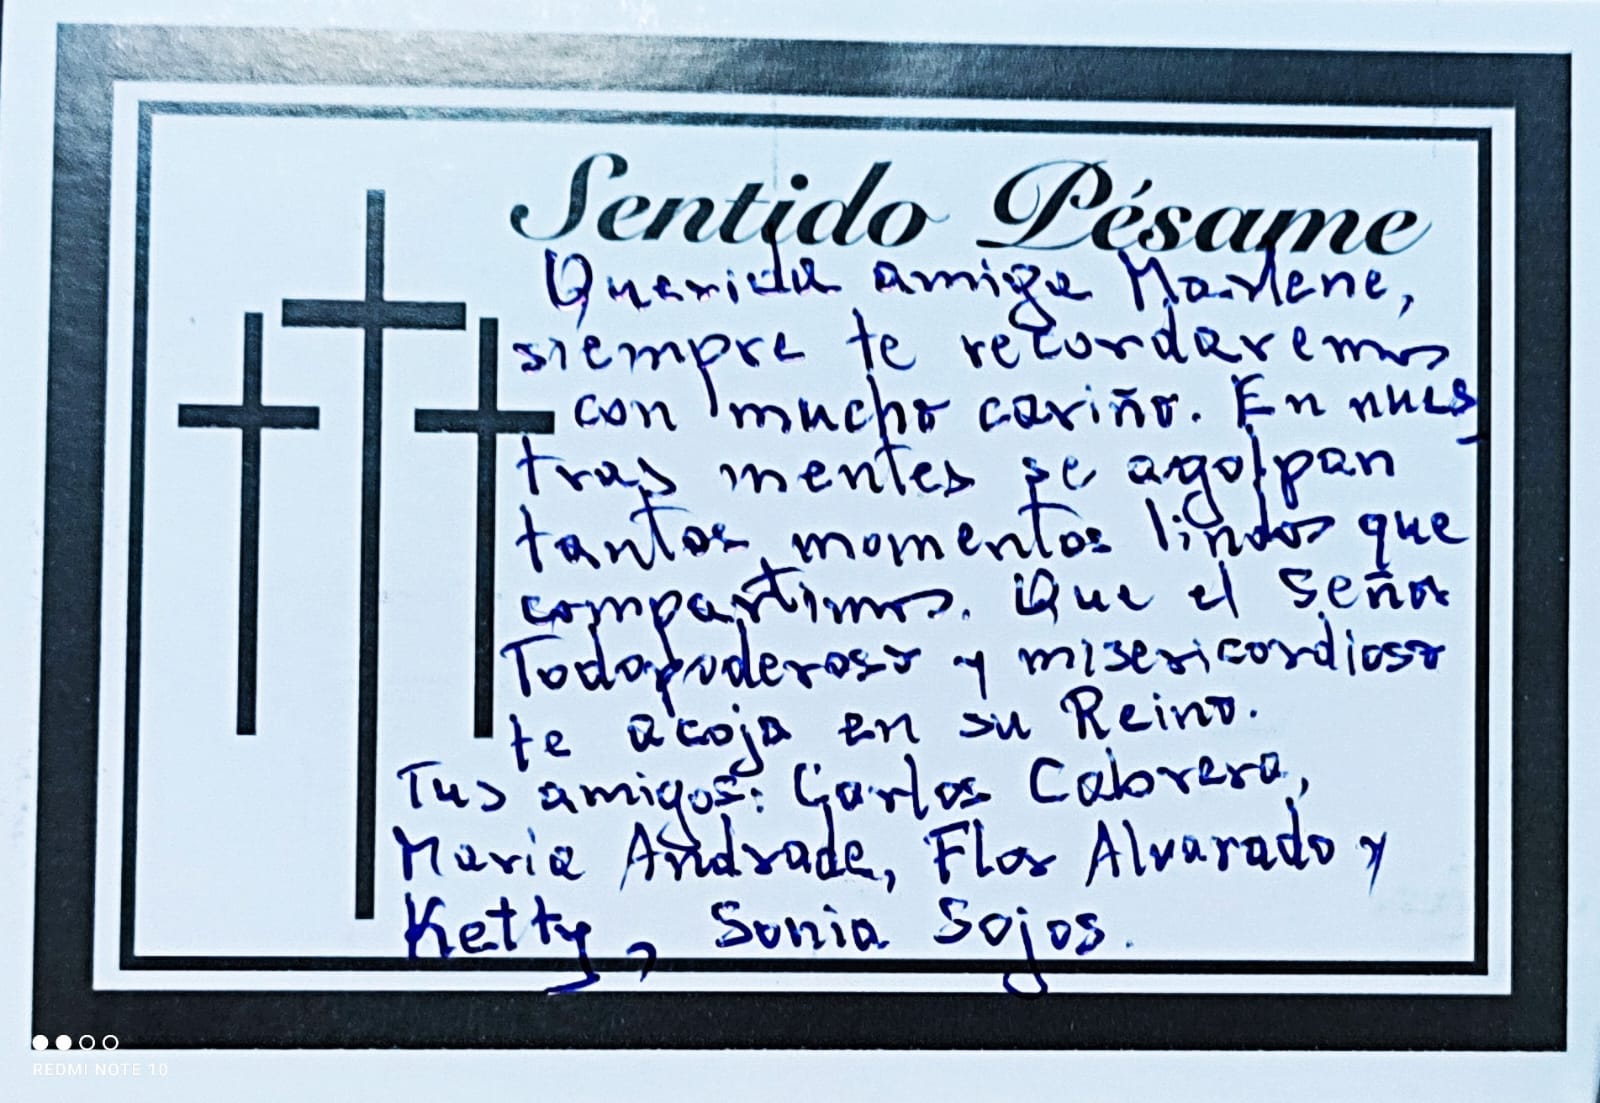 Sentido Pésame
Querida amiga Marlene,
siempre te recordaremos
con mucho cariño. En nues_
tras mentes se agolpan
tantos momentos lindos que
compartimos. Que el Señor
Todopoderoso y misericordioso
te acoja en su Reino.
Tus amigos: Carlos Cabrera,
Maria Andrade, Flor Alvarado y
Ketty, Sonia Sojos.
REDMI NOTE 10